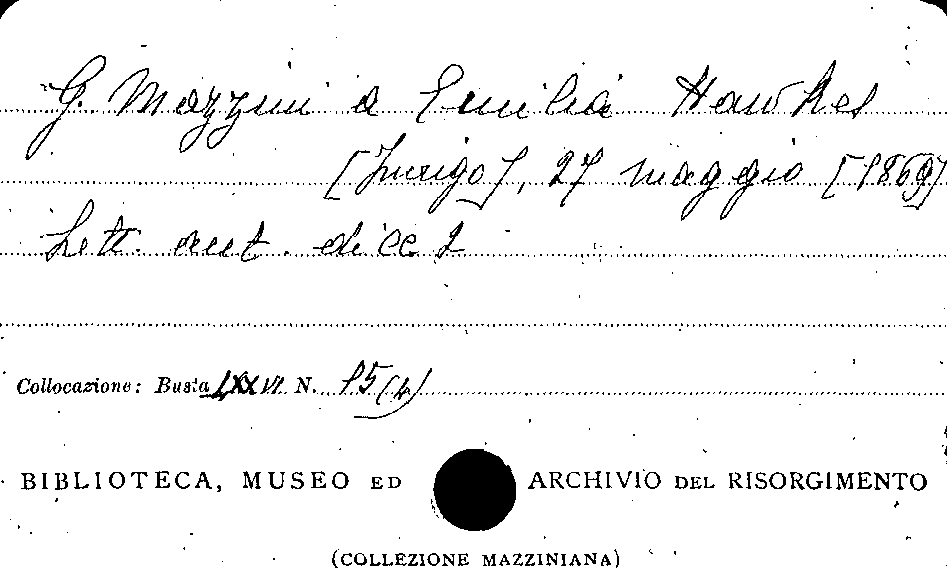 G. Mazzini a Emilia Hawkes
[Zurigo], 27 maggio [1869]
Lett. aut. di cc 2
Collocazione: Busta LXXVI N. 15(4)
BIBLIOTECA, MUSEO ED ARCHIVIO DEL RISORGIMENTO
(COLLEZIONE MAZZINIANA)